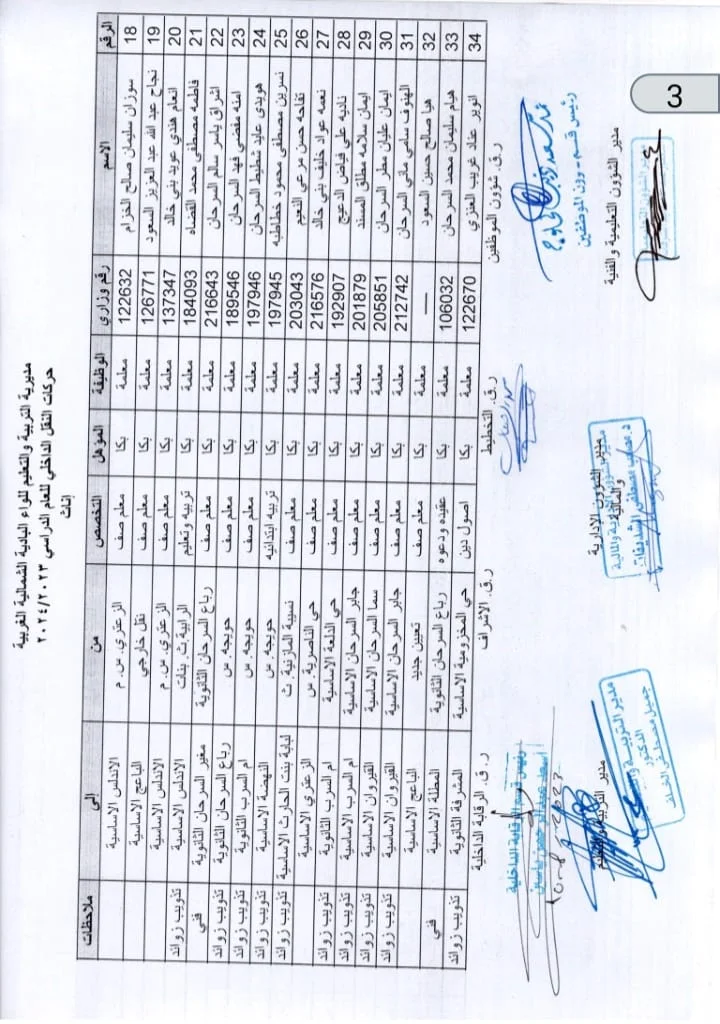 3
مديرية التربية والتعليم للواء البادية الشمالية الغربية
حركات النقل الداخلي للعام الدراسي ٢٠٢٤/٢٠٢٣
إناث
الرقم الاسم رقم وزاري الوظيفة المؤهل التخصص من إلى ملاحظات
18 سوزان سليمان صالح الخزام 122632 معلمة بكا معلم صف الزعتري س. م الاندلس الاساسية
19 نجاح عبد الله عبد العزيز السعود 126771 معلمة بكا معلم صف نقل خارجي الباعج الاساسية
20 انعام هندي عويد بني خالد 137347 معلمة بكا معلم صف الزعتري س. م الاندلس الاساسية
21 فاطمه مصطفى محمد القضاه 184093 معلمة بكا تربيه وتعليم الرابية ث. بنات الاندلس الاساسية تذويب زوائد
22 اشراق ياسر سالم السرحان 216643 معلمة بكا معلم صف رباع السرحان الثانوية مغير السرحان الثانوية فني
23 امنه مفضي فهد السرحان 189546 معلمة بكا معلم صف حويجه. س رباع السرحان الثانوية تذويب زوائد
24 هويدى عايد شطيط السرحان 197946 معلمة بكا معلم صف حويجه. س ام السرب الثانوية تذويب زوائد
25 نسرين مصطفى محمود خطاطبه 197945 معلمة بكا تربيه ابتدائيه حويجه س النهضة الاساسية تذويب زوائد
26 تفاحه حسن مرعي النعيم 203043 معلمة بكا معلم صف نسيبة المازنية. ث لبابة بنت الحارث الاساسية تذويب زوائد
27 نعمه عواد خليف بني خالد 216576 معلمة بكا معلم صف حي الناصرية. س الزعتري الاساسية
28 ناديه علي فياض الدعيج 192907 معلمة بكا معلم صف حي الدلعة الاساسية ام السرب الثانوية تذويب زوائد
29 ايمان سلامه مطلق المسند 201879 معلمة بكا معلم صف جابر السرحان الاساسية ام السرب الاساسية تذويب زوائد
30 ايمان عليان مطر السرحان 205851 معلمة بكا معلم صف سما السرحان الاساسية القيروان الاساسية تذويب زوائد
31 الهنوف سامي ماني السرحان 212742 معلمة بكا معلم صف جابر السرحان الاساسية القيروان الاساسية تذويب زوائد
32 هيا صالح حسين السعود — معلمة بكا معلم صف تعيين جديد الباعج الاساسية
33 هيام سليمان محمد السرحان 106032 معلمة بكا عقيده ودعوه رباع السرحان الثانوية المطلة الاساسية فني
34 انوير عناد غريب العنزي 122670 معلمة بكا اصول دين حي المخزومية الاساسية المشرفة الثانوية تذويب زوائد
ر.ق. شؤون الموظفين ر.ق. التخطيط ر.ق. الاشراف ر.ق. الرقابة الداخلية
رئيس قسم شؤون الموظفين
رئيس قسم الرقابة الداخلية
مدير الشؤون التعليمية و الفنية
مدير الشؤون الادارية والمالية
مدير التربية والتعليم
مدير التربية والتعليم
الدكتور
جميل مصطفى الخلف